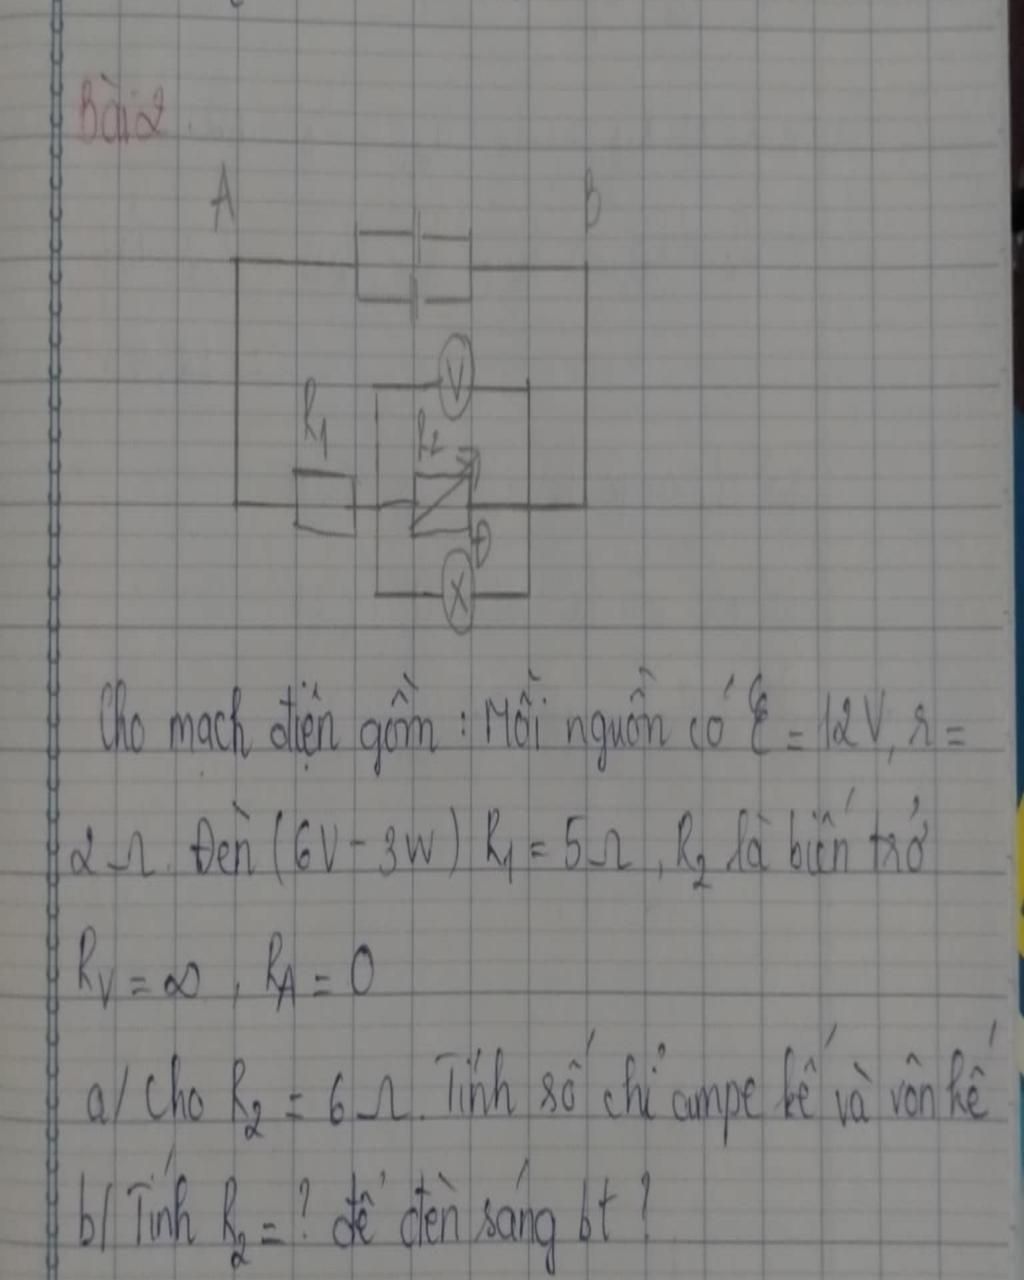 Bài 2
A B
V
R₁ R₂
Đ
X
Cho mạch điện gồm : Mỗi nguồn có ℰ = 12V, r =
2Ω. Đèn (6V - 3W) R₁ = 5Ω, R₂ là biến trở
R_V = ∞, R_A = 0
a/ Cho R₂ = 6Ω. Tính số chỉ ampe kế và vôn kế
b/ Tính R₂ = ? để đèn sáng bt ?